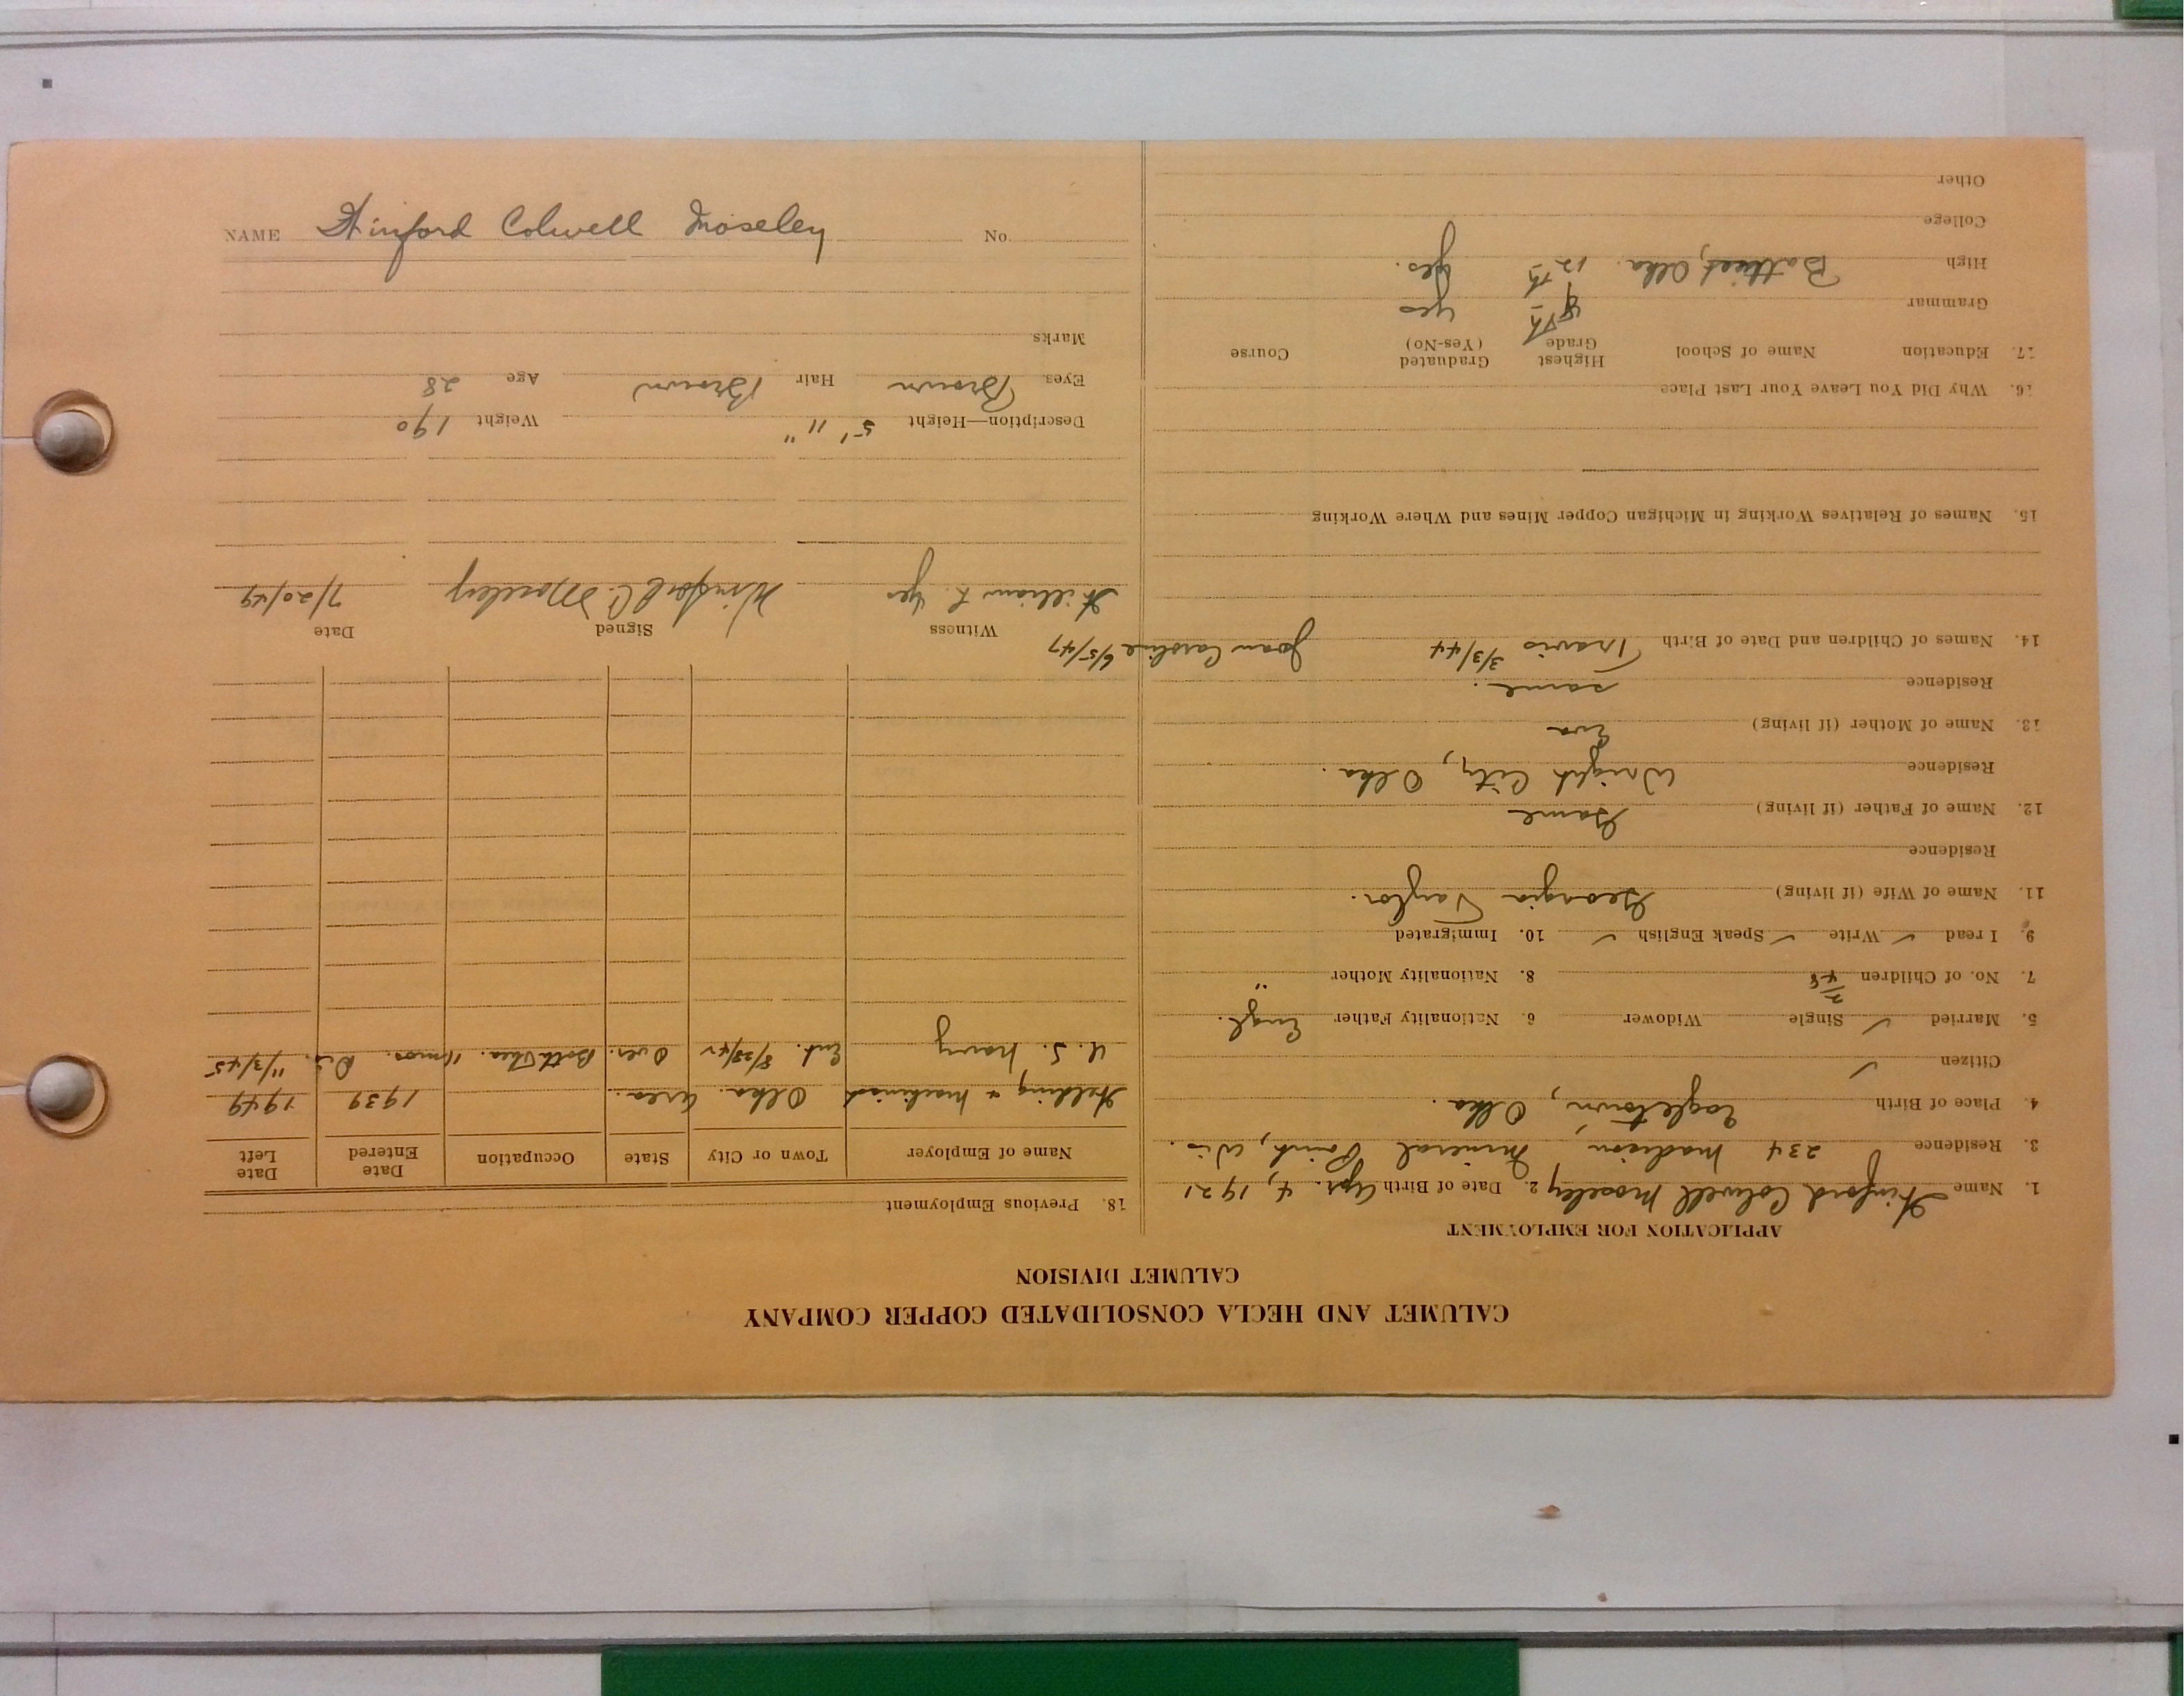 NAME Winford Colwell Moseley No.
CALUMET AND HECLA CONSOLIDATED COPPER COMPANY
CALUMET DIVISION
APPLICATION FOR EMPLOYMENT
1. Name Winford Colwell Moseley 2. Date of Birth Apr. 4, 1921
3. Residence 234 Madison, Mineral Point, Wis.
4. Place of Birth Eagletown, Okla.
Citizen ✓
5. Married ✓ Single Widower 6. Nationality Father Engl.
7. No. of Children 8. Nationality Mother "
9. I read ✓ Write ✓ Speak English ✓ 10. Immigrated
11. Name of Wife (if living) Georgia Taylor.
Residence Same
12. Name of Father (if living)
Residence Wright City, Okla.
13. Name of Mother (if living) Eva
Residence same.
14. Names of Children and Date of Birth Travis 3/3/44 Joan Caroline 6/5/47
15. Names of Relatives Working in Michigan Copper Mines and Where Working
16. Why Did You Leave Your Last Place
17. Education Name of School Highest Grade Graduated (Yes-No) Course
Grammar 8th yes
High Battiest, Okla. 12th yes.
College
Other
18. Previous Employment
Name of Employer Town or City State Occupation Date Entered Date Left
Welding & Machinist Okla. Area. 1939 1949
U. S. Navy Ent. 8/28/42 Over. Both Thea. 11 mos. Dis. 11/3/45
Witness Signed Date
William L. Winford C. Moseley 7/20/49
Description—Height 5' 11" Weight 190
Eyes Brown Hair Brown Age 28
Marks